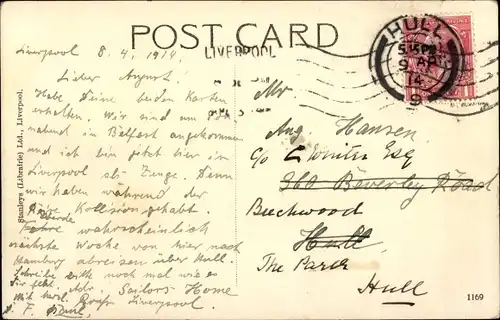 POST CARD
HULL
5.15 PM
9 AP
14
LIVERPOOL
Liverpool 8.4.1914.
Lieber August!
Habe Deine beiden Karten
erhalten. Wir sind am
abend in Belfast angekommen
und ich bin jetzt hier in
Liverpool als Zeuge. Denn
wir haben während der
Kollision gehabt.
Werde
wahrscheinlich
nächste Woche von hier nach
Hamburg abreisen über Hull.
Schreibe bitte noch mal wie es
Dir geht. Adr. Sailors Home
Mit herzl. Gruß Liverpool.
Mr
Aug. Hansen
c/o C Winter Esq
360 Beverley Road
Beechwood
Hull
The Park
Hull
Stanleys (Librairie) Ltd., Liverpool.
1169